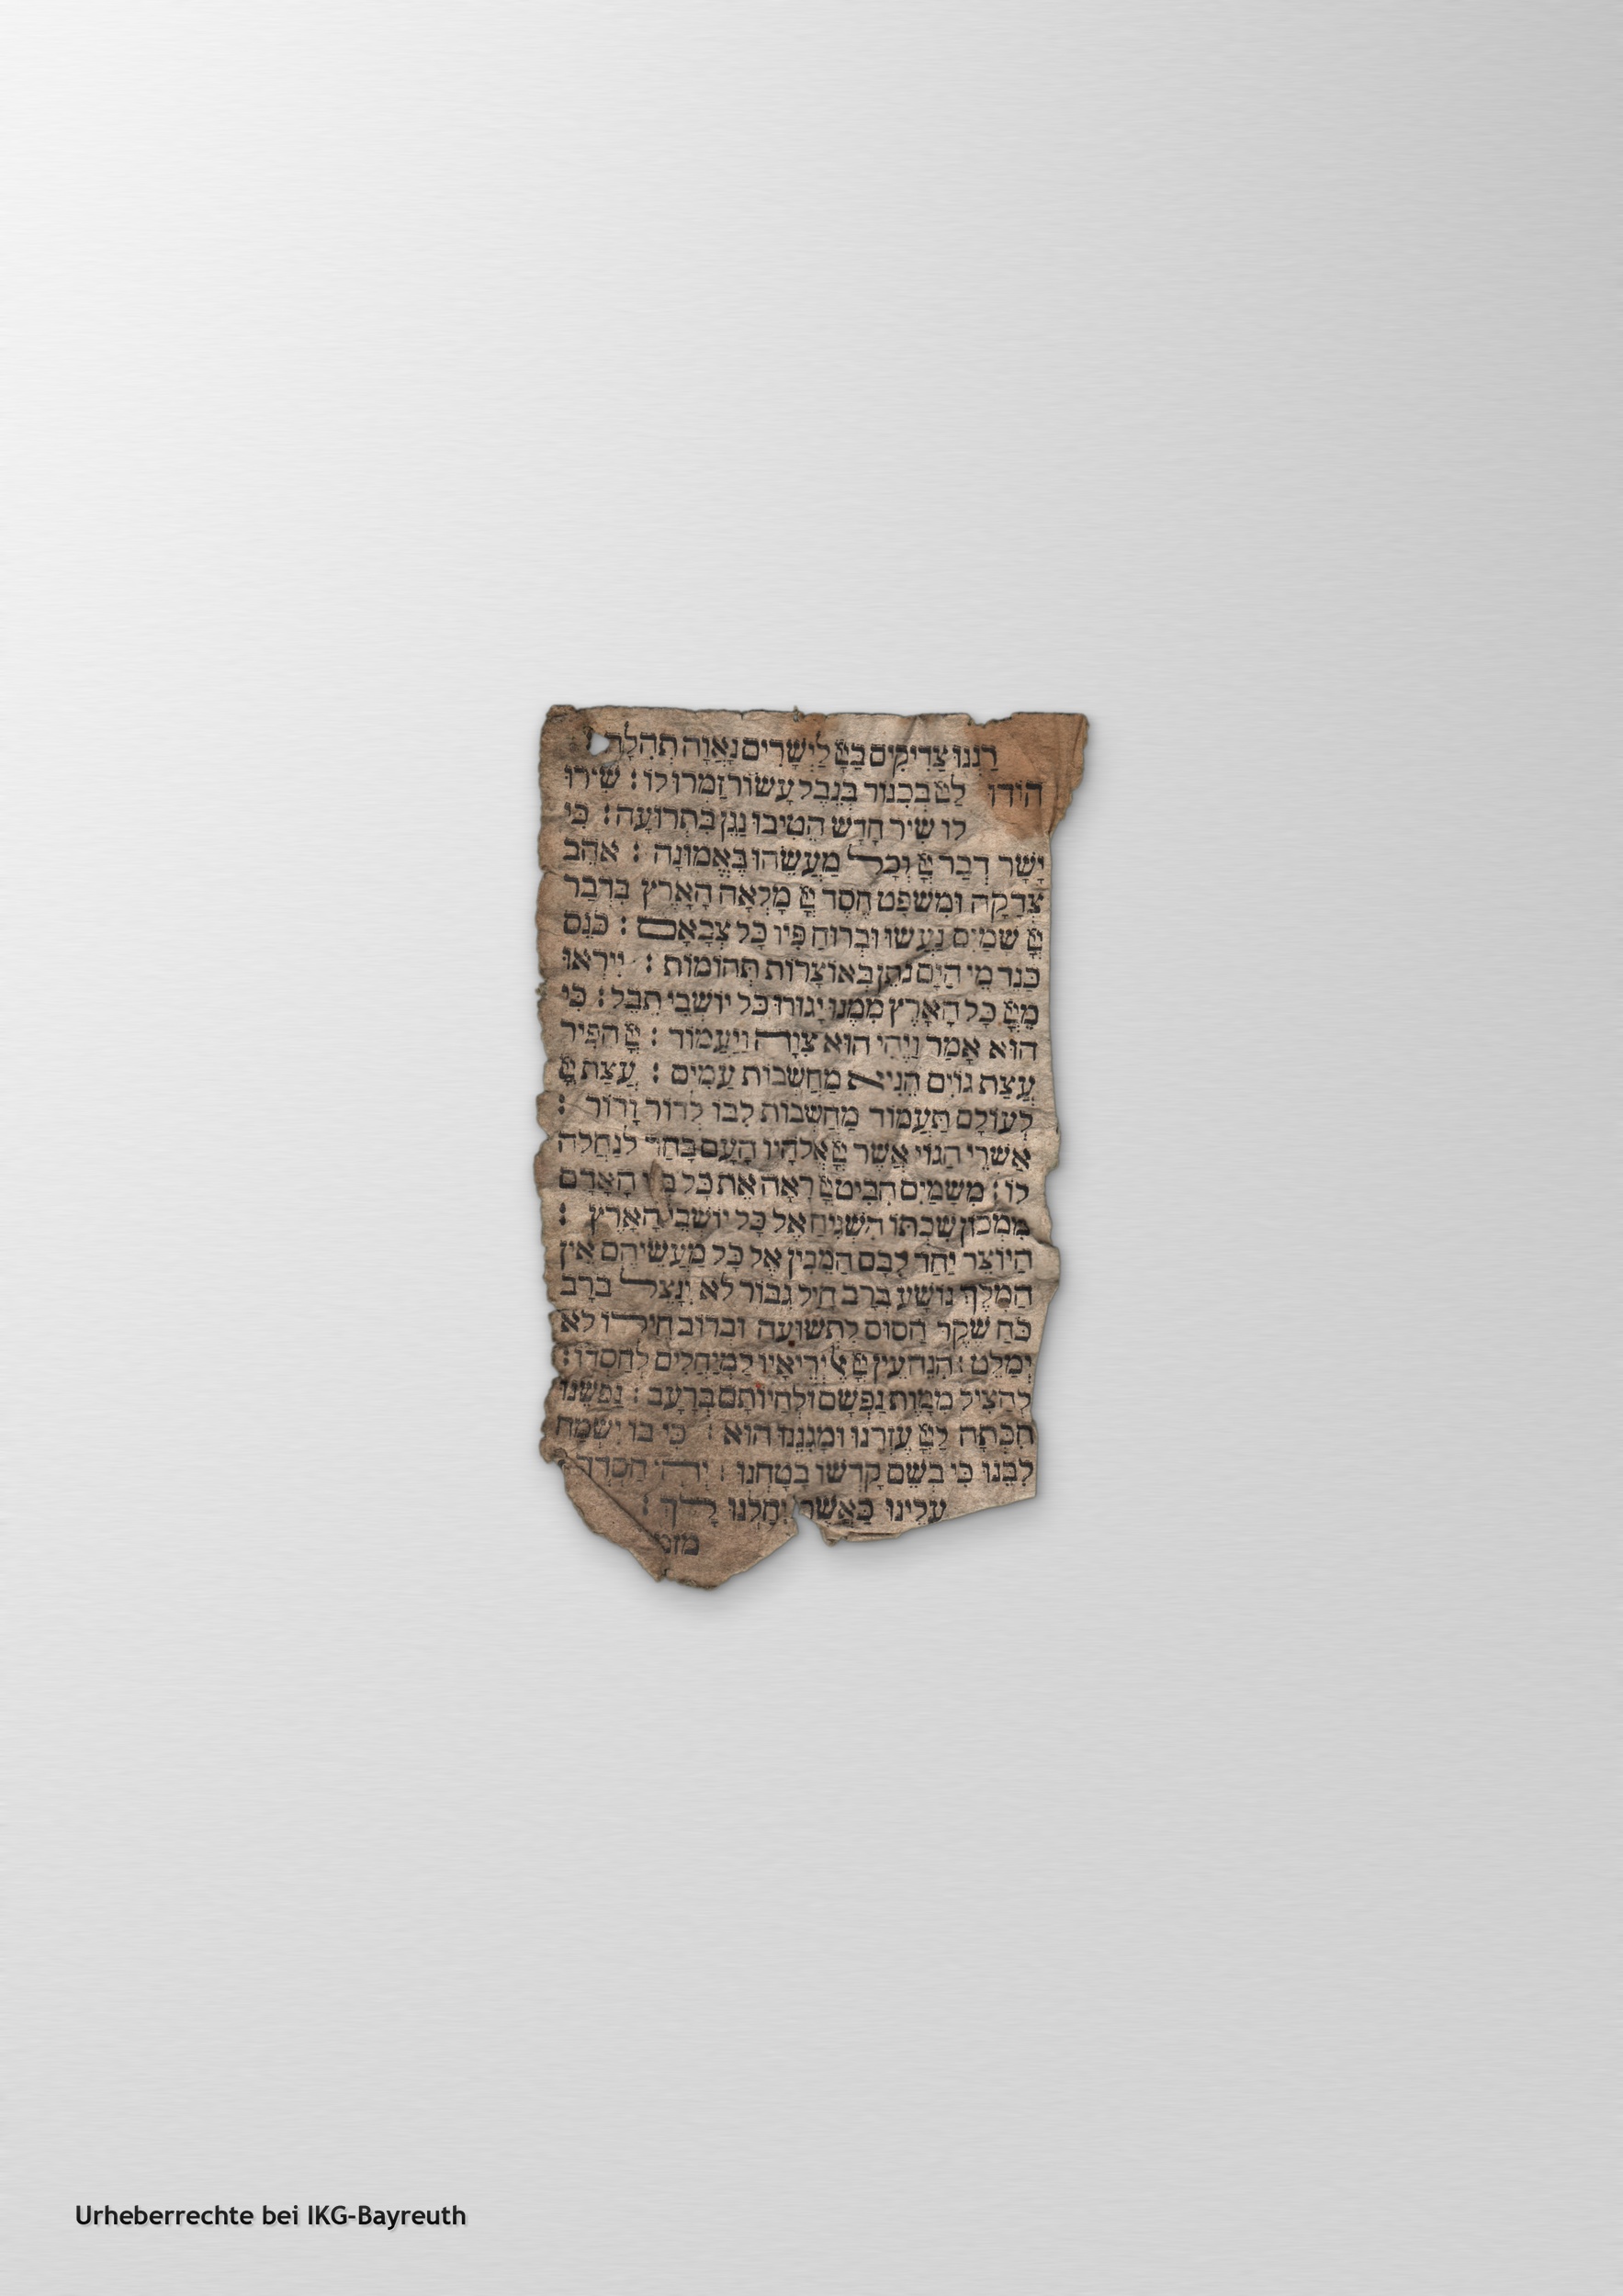 רַנְּנוּ צַדִּיקִים בַּיְיָ לַיְשָׁרִים נָאוָה תְהִלָּה
הוֹדוּ לַיְיָ בְּכִנּוֹר בְּנֵבֶל עָשׂוֹר זַמְּרוּ לוֹ : שִׁירוּ
לוֹ שִׁיר חָדָשׁ הֵטִיבוּ נַגֵּן בִּתְרוּעָה : כִּי
יָשָׁר דְּבַר יְיָ וְכָל מַעֲשֵׂהוּ בֶּאֱמוּנָה : אֹהֵב
צְדָקָה וּמִשְׁפָּט חֶסֶד יְיָ מָלְאָה הָאָרֶץ בִּדְבַר
יְיָ שָׁמַיִם נַעֲשׂוּ וּבְרוּחַ פִּיו כָּל צְבָאָם : כֹּנֵס
כַּנֵּד מֵי הַיָּם נֹתֵן בְּאוֹצָרוֹת תְּהוֹמוֹת : יִירְאוּ
מֵיְיָ כָּל הָאָרֶץ מִמֶּנּוּ יָגוּרוּ כָּל יוֹשְׁבֵי תֵבֵל : כִּי
הוּא אָמַר וַיֶּהִי הוּא צִוָּה וַיַּעֲמוֹד : יְיָ הֵפִיר
עֲצַת גּוֹיִם הֵנִיא מַחְשְׁבוֹת עַמִּים : עֲצַת יְיָ
לְעוֹלָם תַּעֲמוֹד מַחְשְׁבוֹת לִבּוֹ לְדוֹר וָדוֹר :
אַשְׁרֵי הַגּוֹי אֲשֶׁר יְיָ אֱלֹהָיו הָעָם בָּחַר לְנַחֲלָה
לוֹ : מִשָּׁמַיִם הִבִּיט יְיָ רָאָה אֶת כָּל בְּנֵי הָאָדָם
מִמְּכוֹן שִׁבְתּוֹ הִשְׁגִּיחַ אֶל כָּל יוֹשְׁבֵי הָאָרֶץ :
הַיּוֹצֵר יַחַד לִבָּם הַמֵּבִין אֶל כָּל מַעֲשֵׂיהֶם אֵין
הַמֶּלֶךְ נוֹשָׁע בְּרָב חָיִל גִּבּוֹר לֹא יִנָּצֵל בְּרָב
כֹּחַ שֶׁקֶר הַסּוּס לִתְשׁוּעָה וּבְרוֹב חֵילוֹ לֹא
יְמַלֵּט : הִנֵּה עֵין יְיָ אֶל יְרֵיאָיו לַמְיַחֲלִים לְחַסְדּוֹ :
לְהַצִּיל מִמָּוֶת נַפְשָׁם וּלְחַיּוֹתָם בָּרָעָב : נַפְשֵׁנוּ
חִכְּתָה לַיְיָ עֶזְרֵנוּ וּמָגִנֵּנוּ הוּא : כִּי בוֹ יִשְׂמַח
לִבֵּנוּ כִּי בְשֵׁם קָדְשׁוֹ בָטָחְנוּ : יְהִי חַסְדְּךָ יְיָ
עָלֵינוּ כַּאֲשֶׁר יִחַלְנוּ לָךְ :
מזמ
Urheberrechte bei IKG-Bayreuth